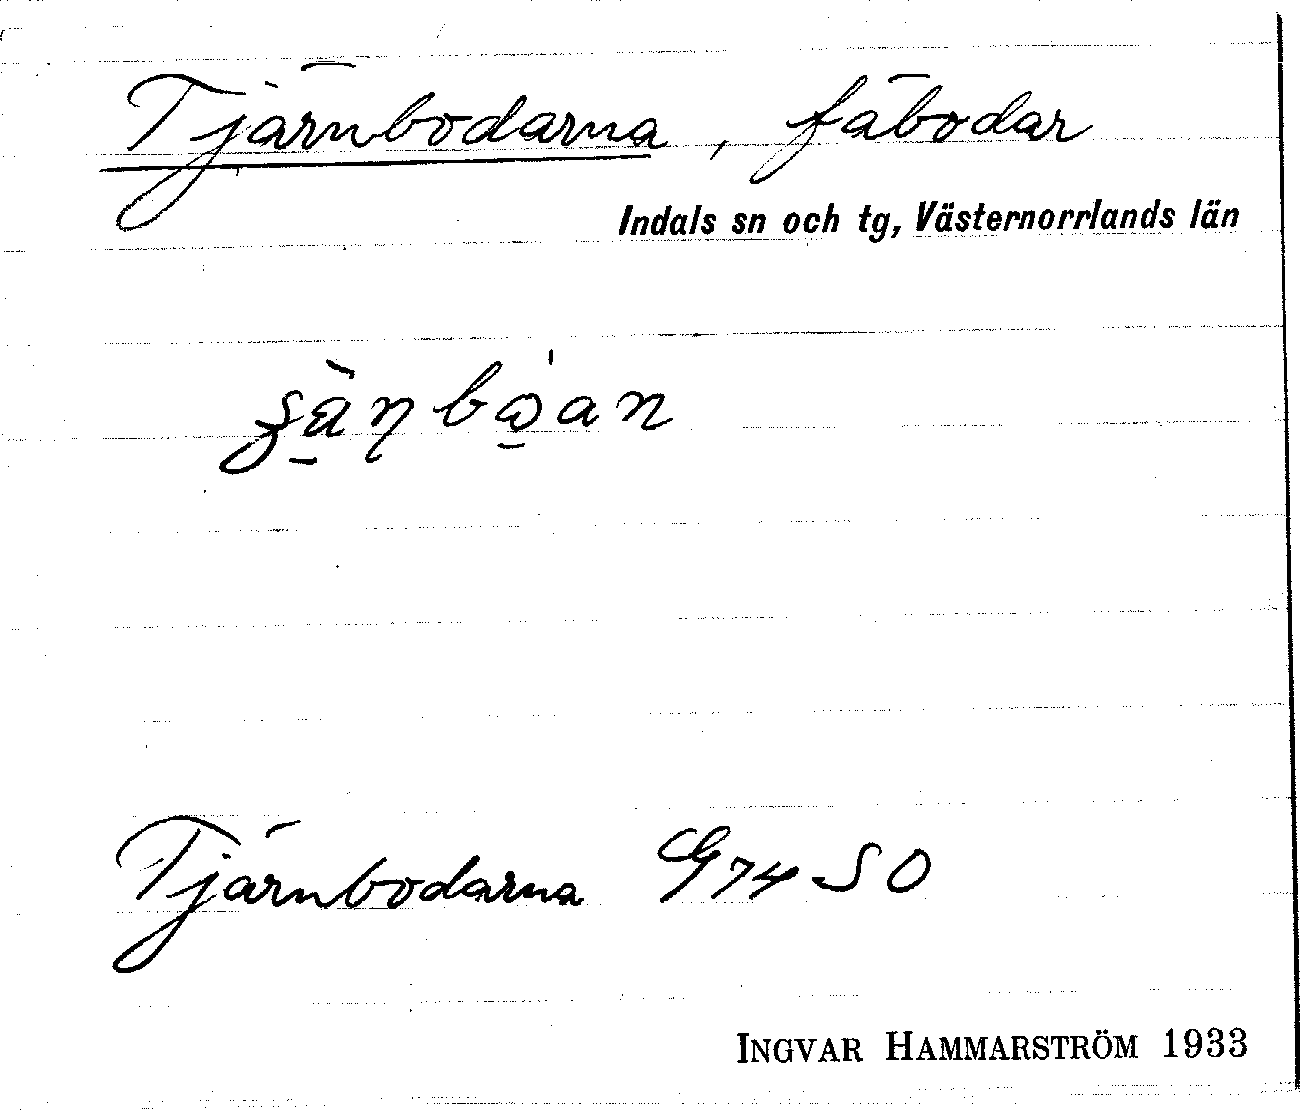 Tjärnbodarna, fäbodar
Indals sn och tg, Västernorrlands län
Tjärnbodarna G74 SO
INGVAR HAMMARSTRÖM 1933